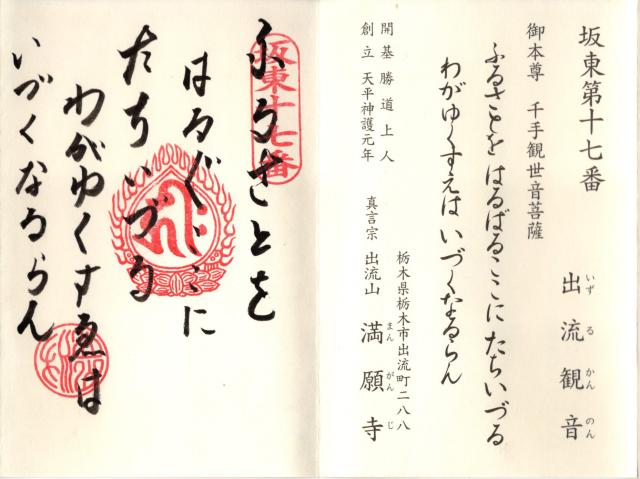 坂東第十七番
出流観音
いずるかんのん
御本尊 千手観世音菩薩
ふるさとを はるばるここに たちいづる
わがゆくすえは いづくなるらん
開基 勝道上人
創立 天平神護元年
栃木県栃木市出流町二八八
真言宗 出流山 満願寺
まんがんじ
坂東十七番
ふるさとを
はるばるここに
たちいづる
わがゆくすゑは
いづくなるらん